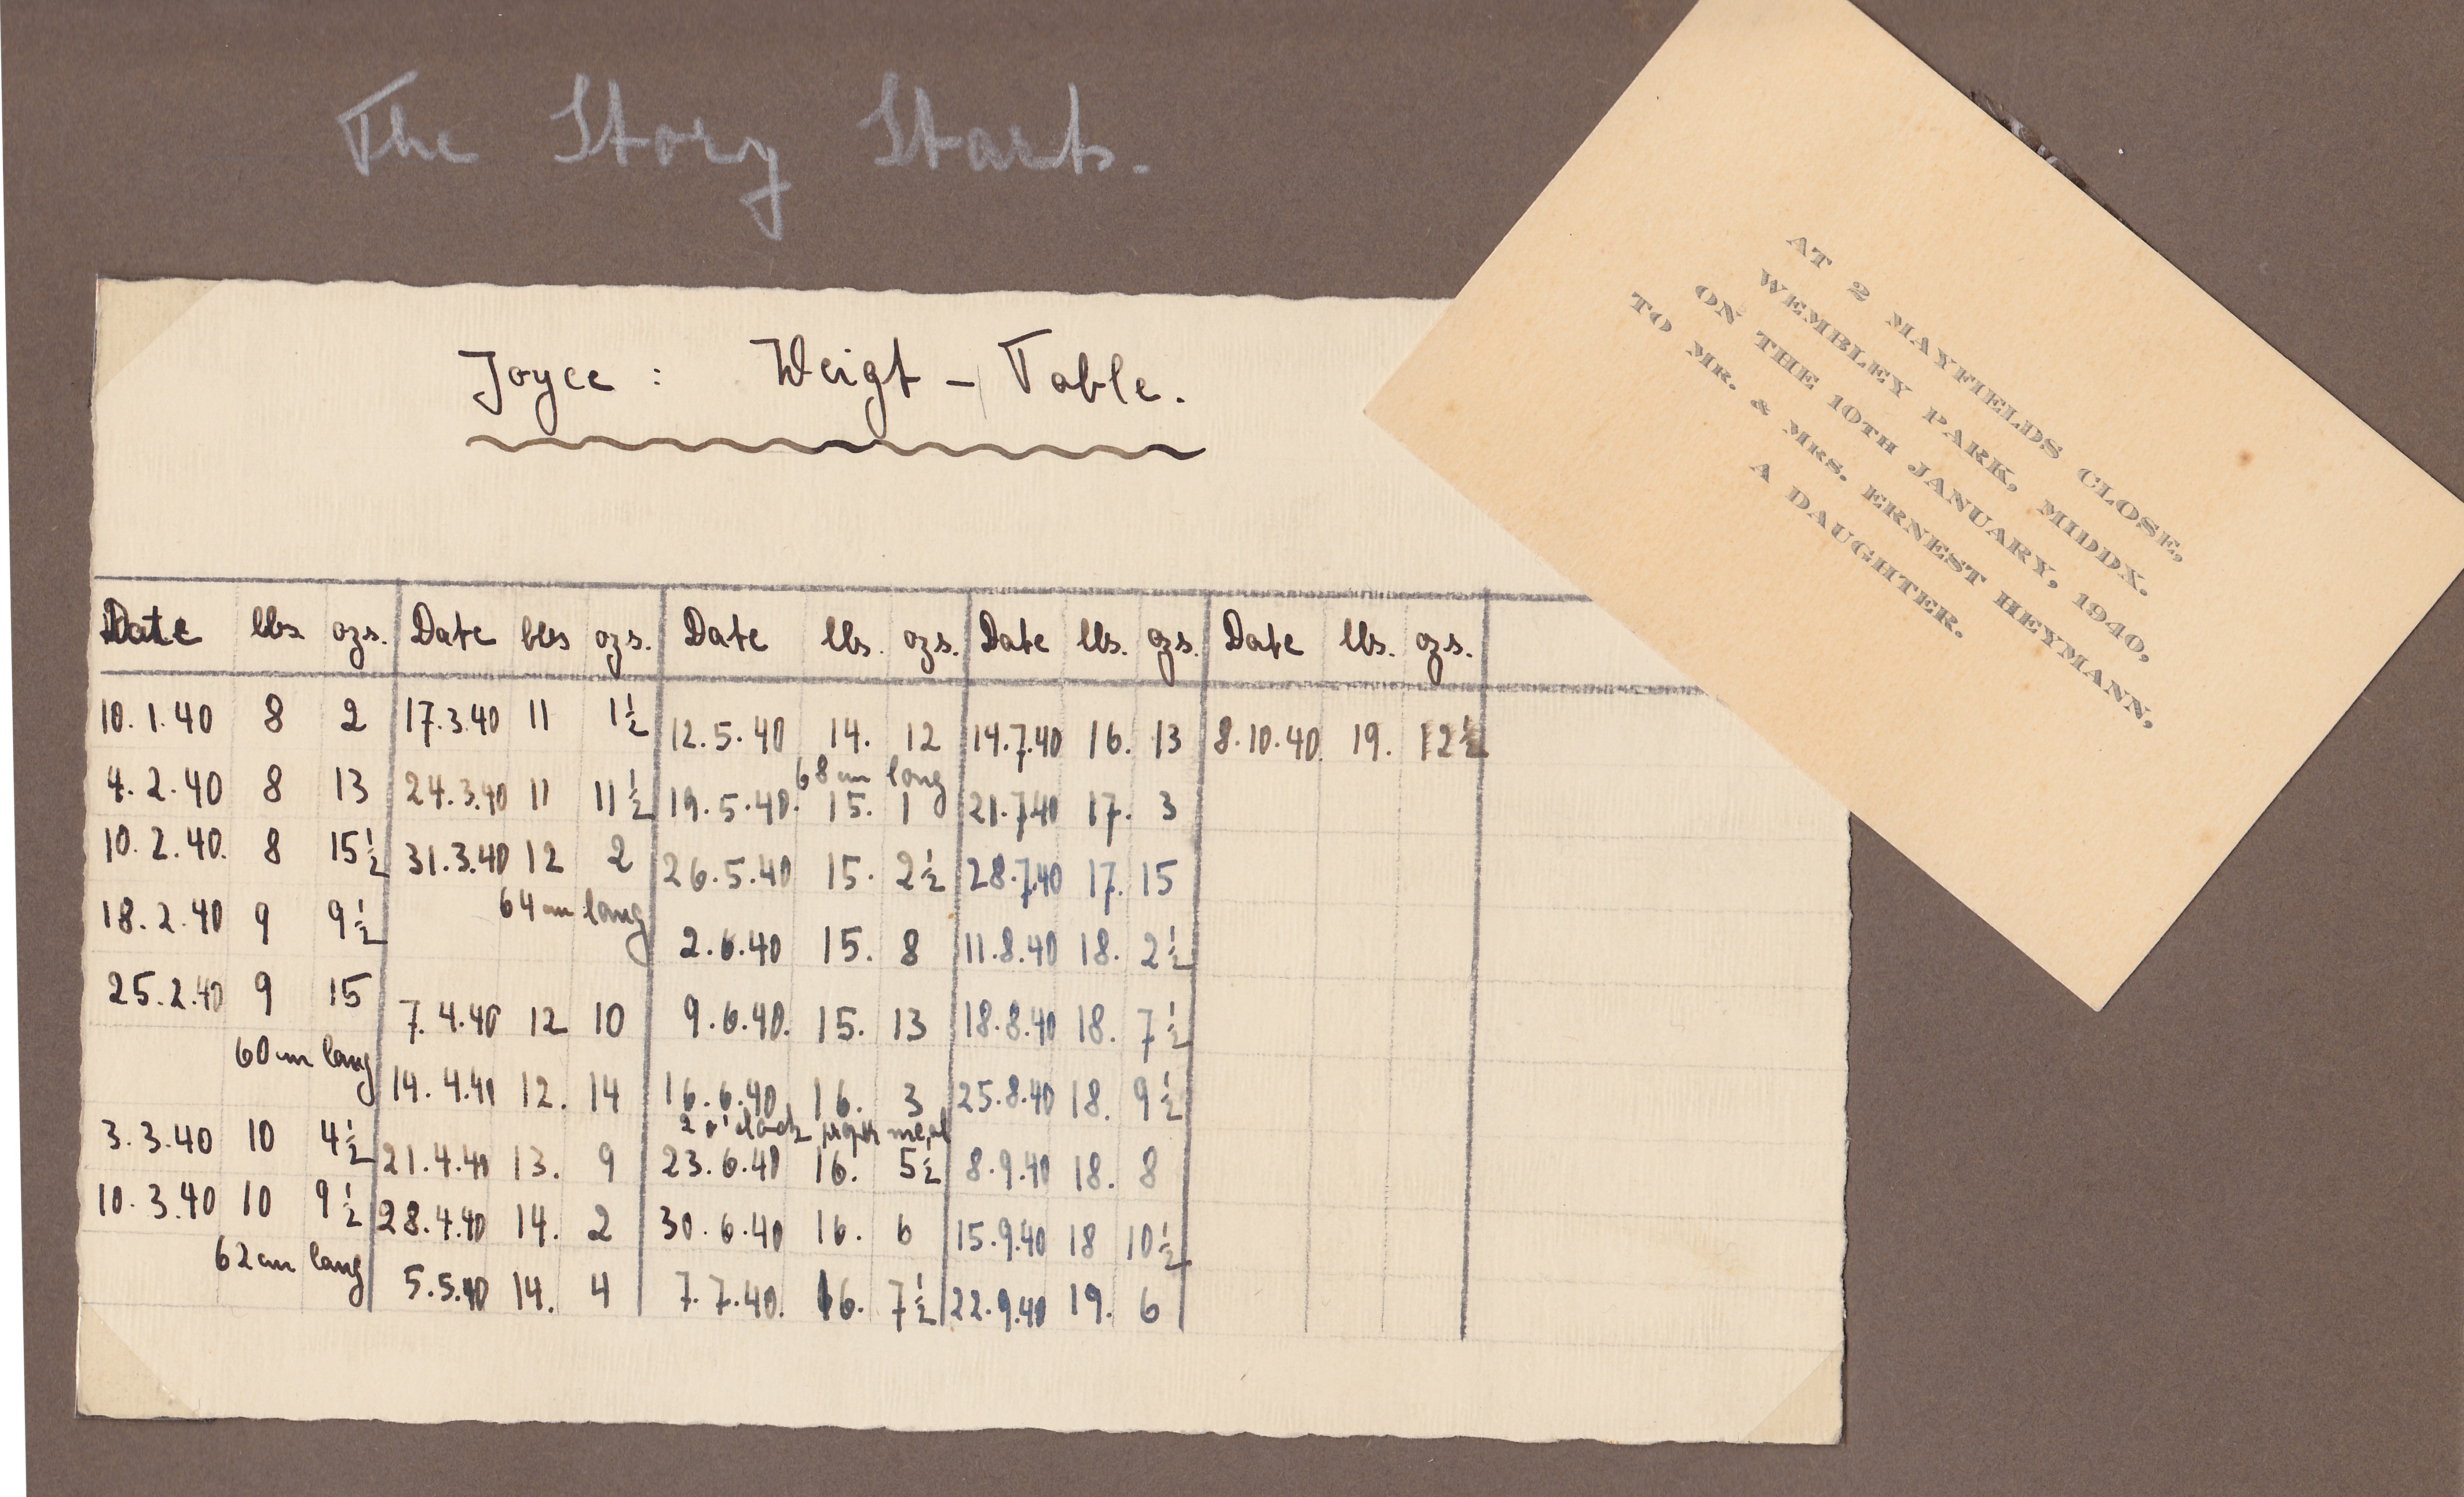 The Story Starts.
Joyce : Weigt - Table.
Date lbs ozs. Date lbs ozs. Date lbs. ozs. Date lbs. ozs. Date lbs. ozs.
10.1.40 8 2 17.3.40 11 1½ 12.5.40 14. 12 14.7.40 16. 13 8.10.40. 19. 12½
68 cm long
4.2.40 8 13 24.3.40 11 11½ 19.5.40. 15. 1 21.7.40 17. 3
10.2.40. 8 15½ 31.3.40 12 2 26.5.40 15. 2½ 28.7.40 17. 15
64 cm lang
18.2.40 9 9½ 2.6.40 15. 8 11.8.40 18. 2½
25.2.40 9 15 7.4.40 12 10 9.6.40. 15. 13 18.8.40 18. 7½
60 cm lang
14.4.40 12. 14 16.6.40 16. 3 25.8.40 18. 9½
2 o'clock meal
3.3.40 10 4½ 21.4.40 13. 9 23.6.40 16. 5½ 8.9.40 18. 8
10.3.40 10 9½ 28.4.40 14. 2 30.6.40 16. 6 15.9.40 18 10½
62 cm lang
5.5.40 14. 4 7.7.40. 16. 7½ 22.9.40 19. 6
AT 2 MAYFIELDS CLOSE,
WEMBLEY PARK, MIDDX.
ON THE 10TH JANUARY, 1940,
TO MR. & MRS. ERNEST HEYMANN,
A DAUGHTER.